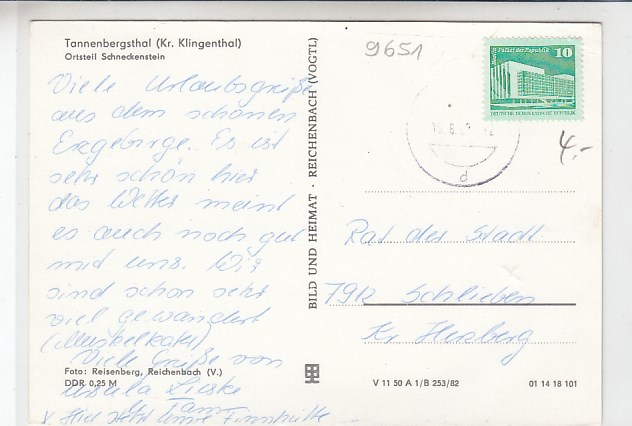 Tannenbergsthal (Kr. Klingenthal)
Ortsteil Schneckenstein
Viele Urlaubsgrüße
aus dem schönen
Erzgebirge. Es ist
sehr schön hier
das Wetter meint
es auch noch gut
mit uns. Wir
sind schon sehr
viel gewandert
(Muskelkater)
Viele Grüße von
Ursula Lieske
Foto: Reisenberg, Reichenbach (V.)
DDR 0,25 M
BILD UND HEIMAT · REICHENBACH (VOGTL)
9651
Palast der Republik 10
DEUTSCHE DEMOKRATISCHE REPUBLIK
d
4,-
Rat der Stadt
7912 Schlieben
Kr Herzberg
V 11 50 A 1/B 253/82
01 14 18 101